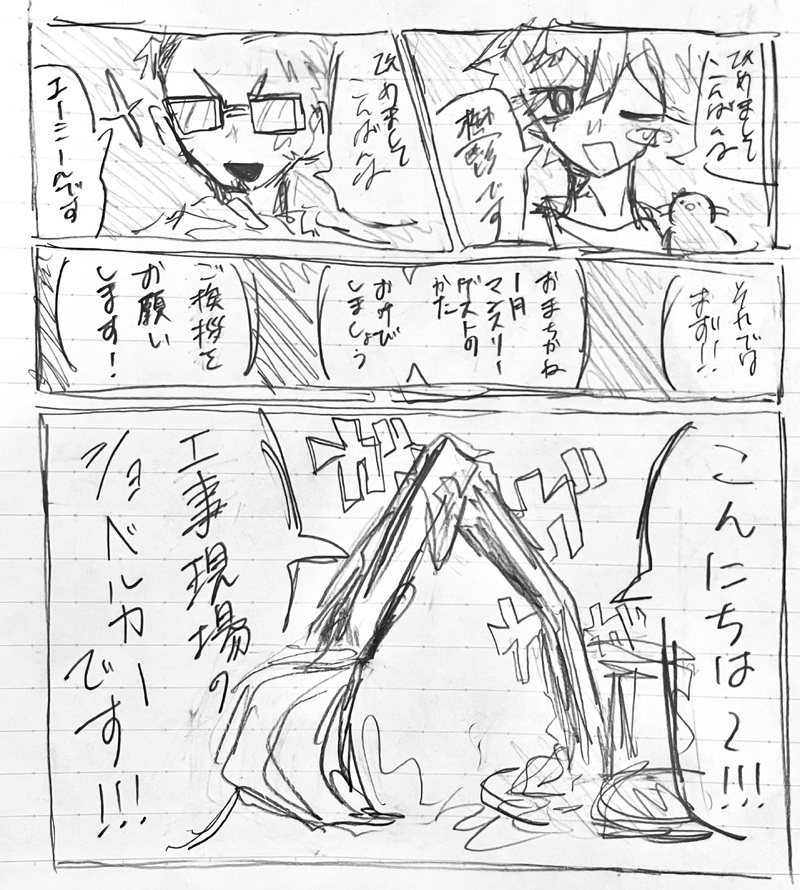 改めまして
こんばんは
鬱です
改めまして
こんばんは
エーミールです
それでは
まず!!
おまちかね
1月
マンスリー
ゲストの
かた
および
しましょう
ご挨拶を
お願い
します!
こんにちは〜!!!
ガガガガ
工事現場の
ショベルカー
です!!!